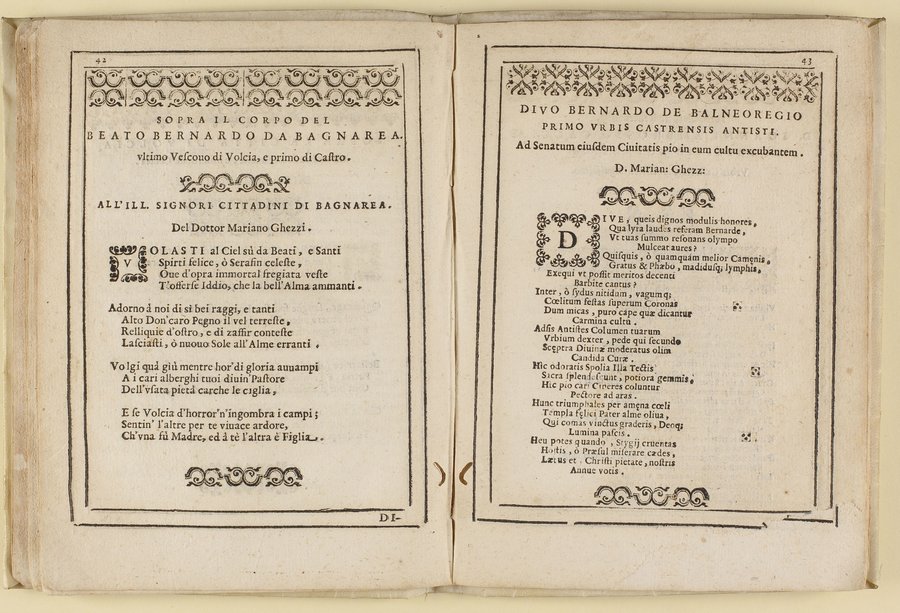 42
SOPRA IL CORPO DEL
BEATO BERNARDO DA BAGNAREA.
vltimo Vescouo di Volcia, e primo di Caſtro.
ALL'ILL. SIGNORI CITTADINI DI BAGNAREA.
Del Dottor Mariano Ghezzi.
VOLASTI al Ciel sù da Beati, e Santi
Spirti felice, ò Serafin celeſte,
Oue d'opra immortal fregiata veſte
T'offerſe Iddio, che la bell'Alma ammanti.
Adorno à noi di sì bei raggi, e tanti
Alto Don'caro Pegno il vel terreſte,
Relliquie d'oſtro, e di zaffir conteſte
Laſciaſti, ò nuouo Sole all'Alme erranti.
Volgi quà giù mentre hor'di gloria auuampi
A i cari alberghi tuoi diuin'Paſtore
Dell'vſata pietà carche le ciglia,
E ſe Volcia d'horror'n'ingombra i campi;
Sentin' l'altre per te viuace ardore,
Ch'vna ſù Madre, ed à tè l'altra è Figlia.
DI-
43
DIVO BERNARDO DE BALNEOREGIO
PRIMO VRBIS CASTRENSIS ANTISTI.
Ad Senatum eiuſdem Ciuitatis pio in eum cultu excubantem.
D. Marian: Ghezz:
DIVE, queis dignos modulis honores,
Qua lyra laudes referam Bernarde,
Vt tuas ſummo reſonans olympo
Mulceat aures?
Quiſquis, ò quamquam melior Camęnis,
Gratus & Phæbo, madiduſq; lymphis,
Exequi vt poſſit meritos decenti
Barbite cantus?
Inter, ò ſydus nitidum, vagumq;
Cœlitum feſtas ſuperum Coronas
Dum micas, puro cape quæ dicantur
Carmina cultu.
Adſis Antiſtes Columen tuarum
Vrbium dexter, pede qui ſecundo
Sceptra Diuinæ moderatus olim
Candida Curæ.
Hic odoratis Spolia Illa Tectis
Sacra ſplendeſcunt, potiora gemmis,
Hic pio cari Cineres coluntur
Pectore ad aras.
Hunc triumphales per amęna cœli
Templa fęlici Pater alme oliua,
Qui comas vinctus graderis, Deoq;
Lumina paſcis.
Heu potes quando, Stygij cruentas
Hoſtis, ò Præſul miſerare cædes,
Lætus et Chriſti pietate, noſtris
Annue votis.